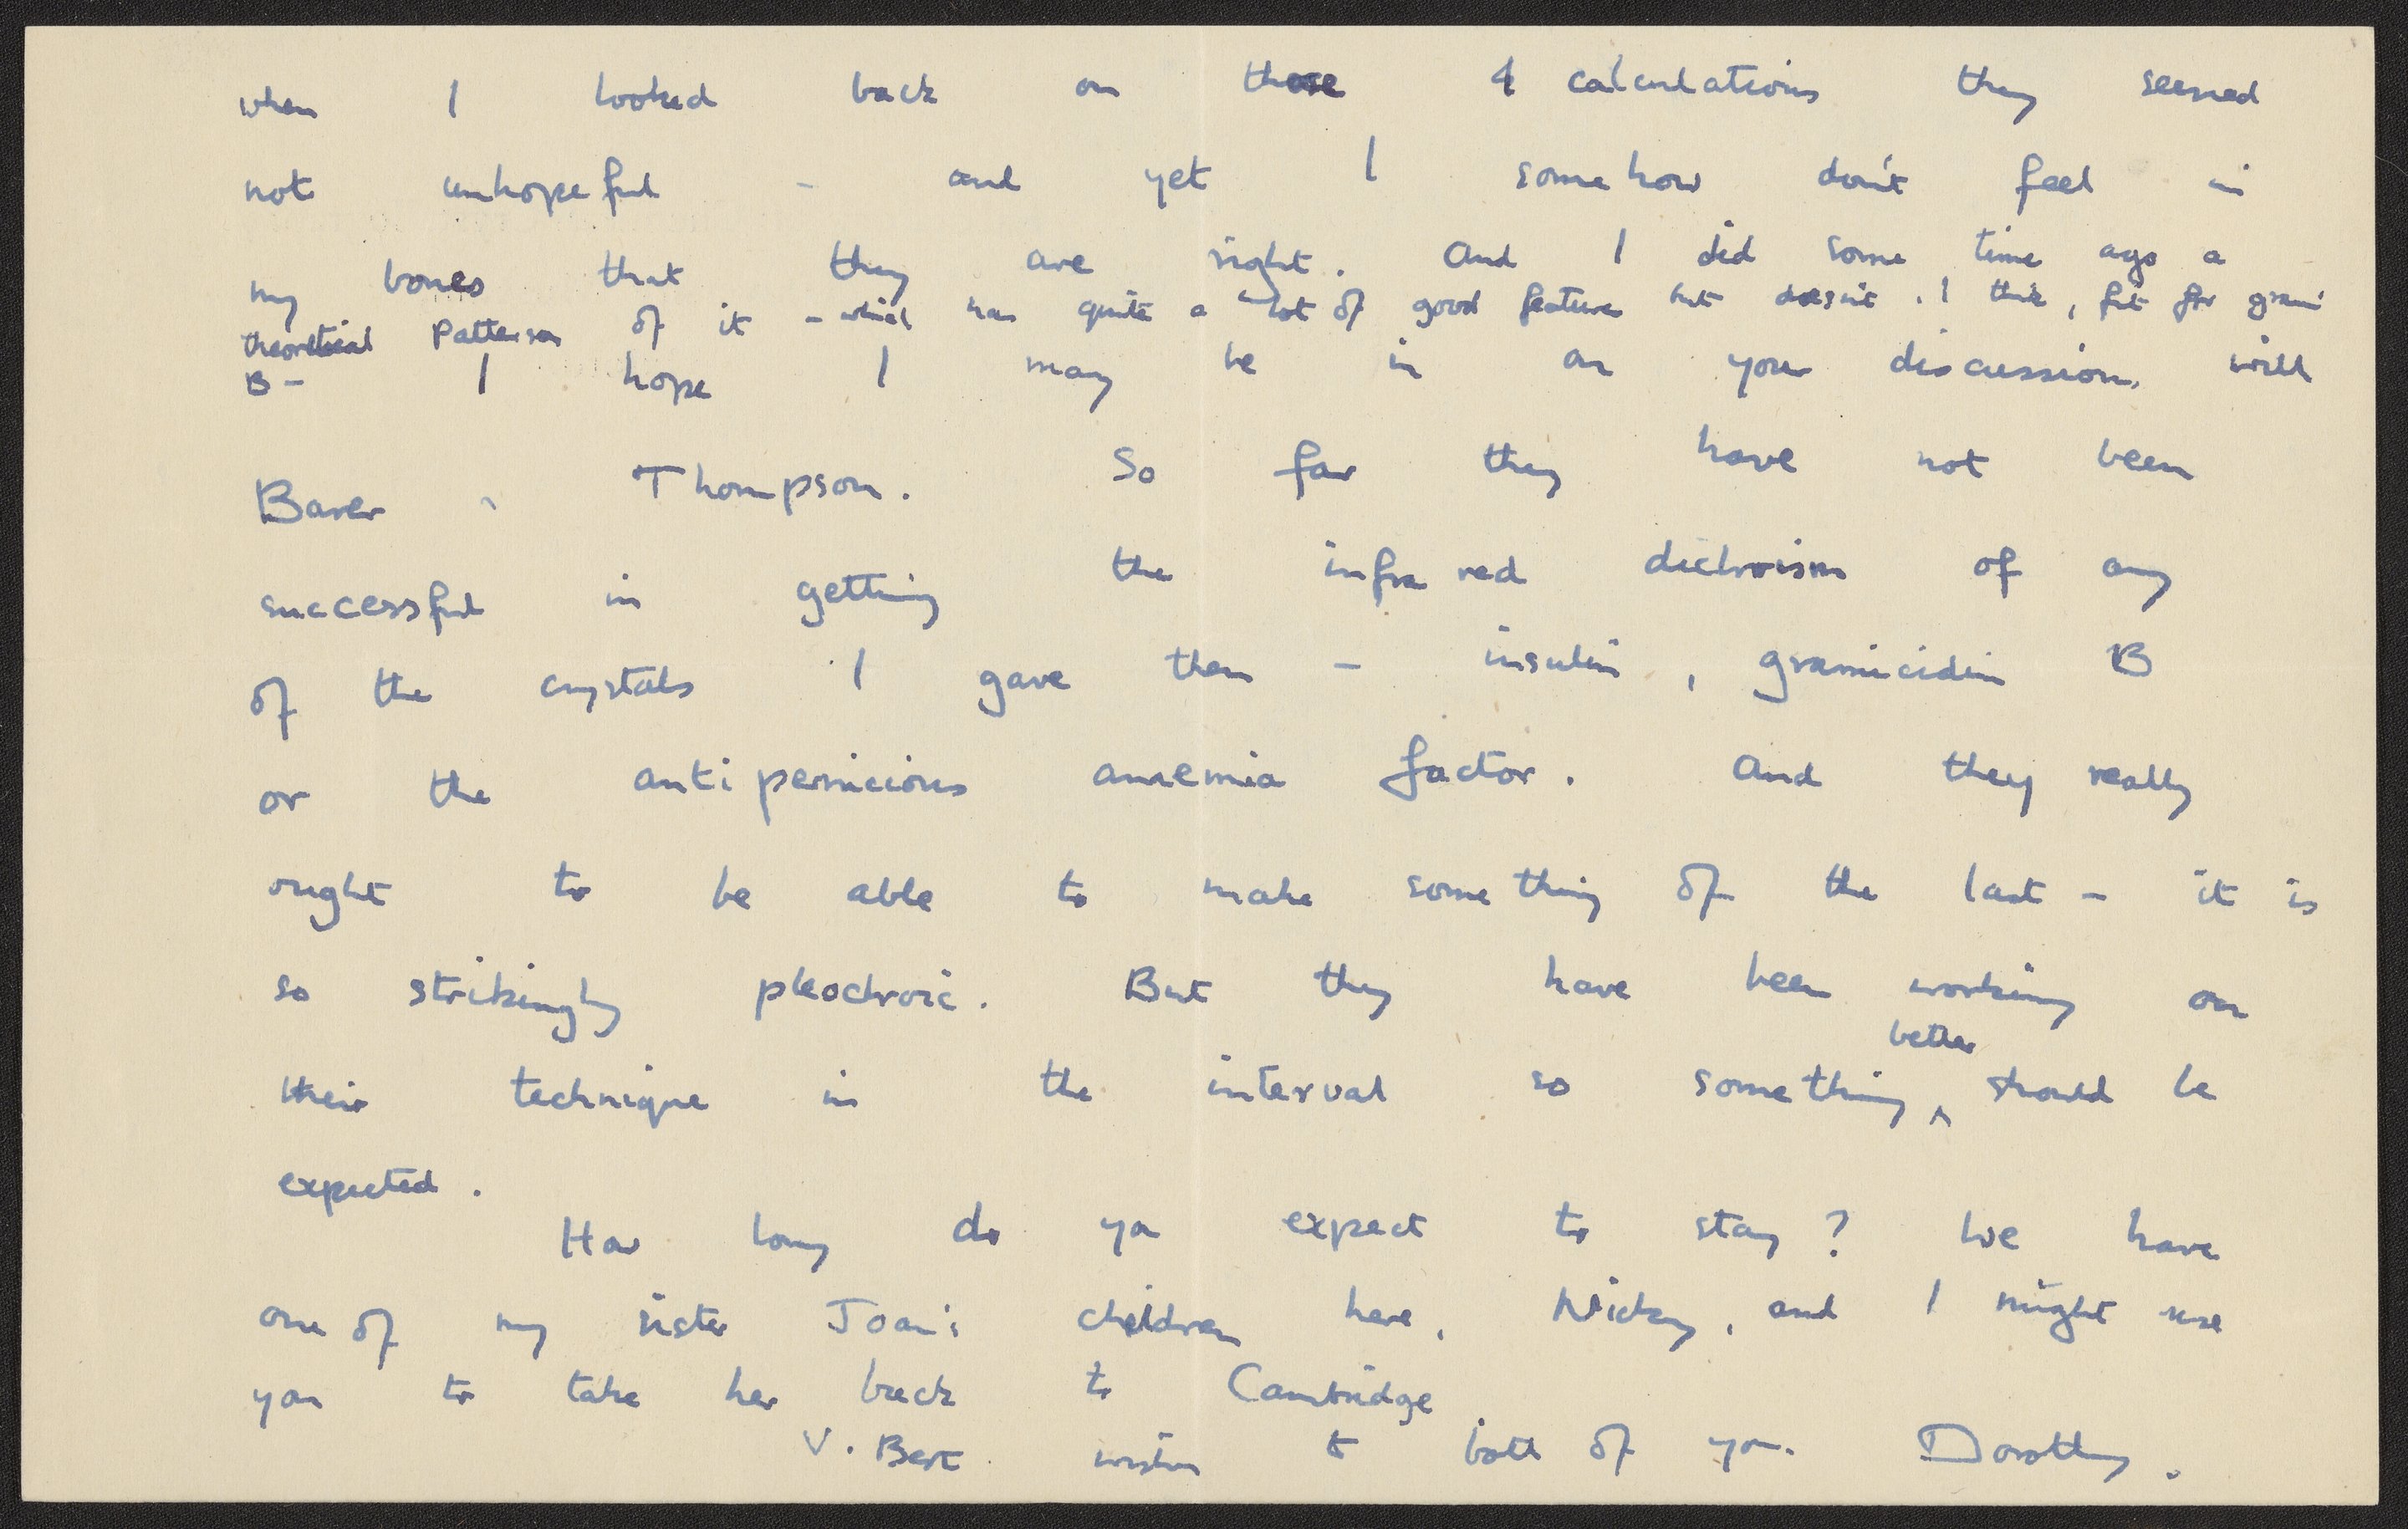 when I looked back on those 4 calculations they seemed
not unhopeful - and yet I somehow don't feel in
my bones that they are right. And I did some time ago a
theoretical Patterson of it - which has quite a lot of good features but doesn't, I think, fit for grami
B - I hope I may be in on your discussion, with
Barer & Thompson. So far they have not been
successful in getting the infra red dichroism of any
of the crystals I gave them - insulin, gramicidin B
or the anti pernicious anaemia factor. And they really
ought to be able to make something of the last - it is
so strikingly pleochroic. But they have been working on
their technique in the interval so something better should be
expected.
How long do you expect to stay? We have
one of my sister Joan's children here, Nicky, and I might use
you to take her back to Cambridge
V. Best wishes to both of you. Dorothy.